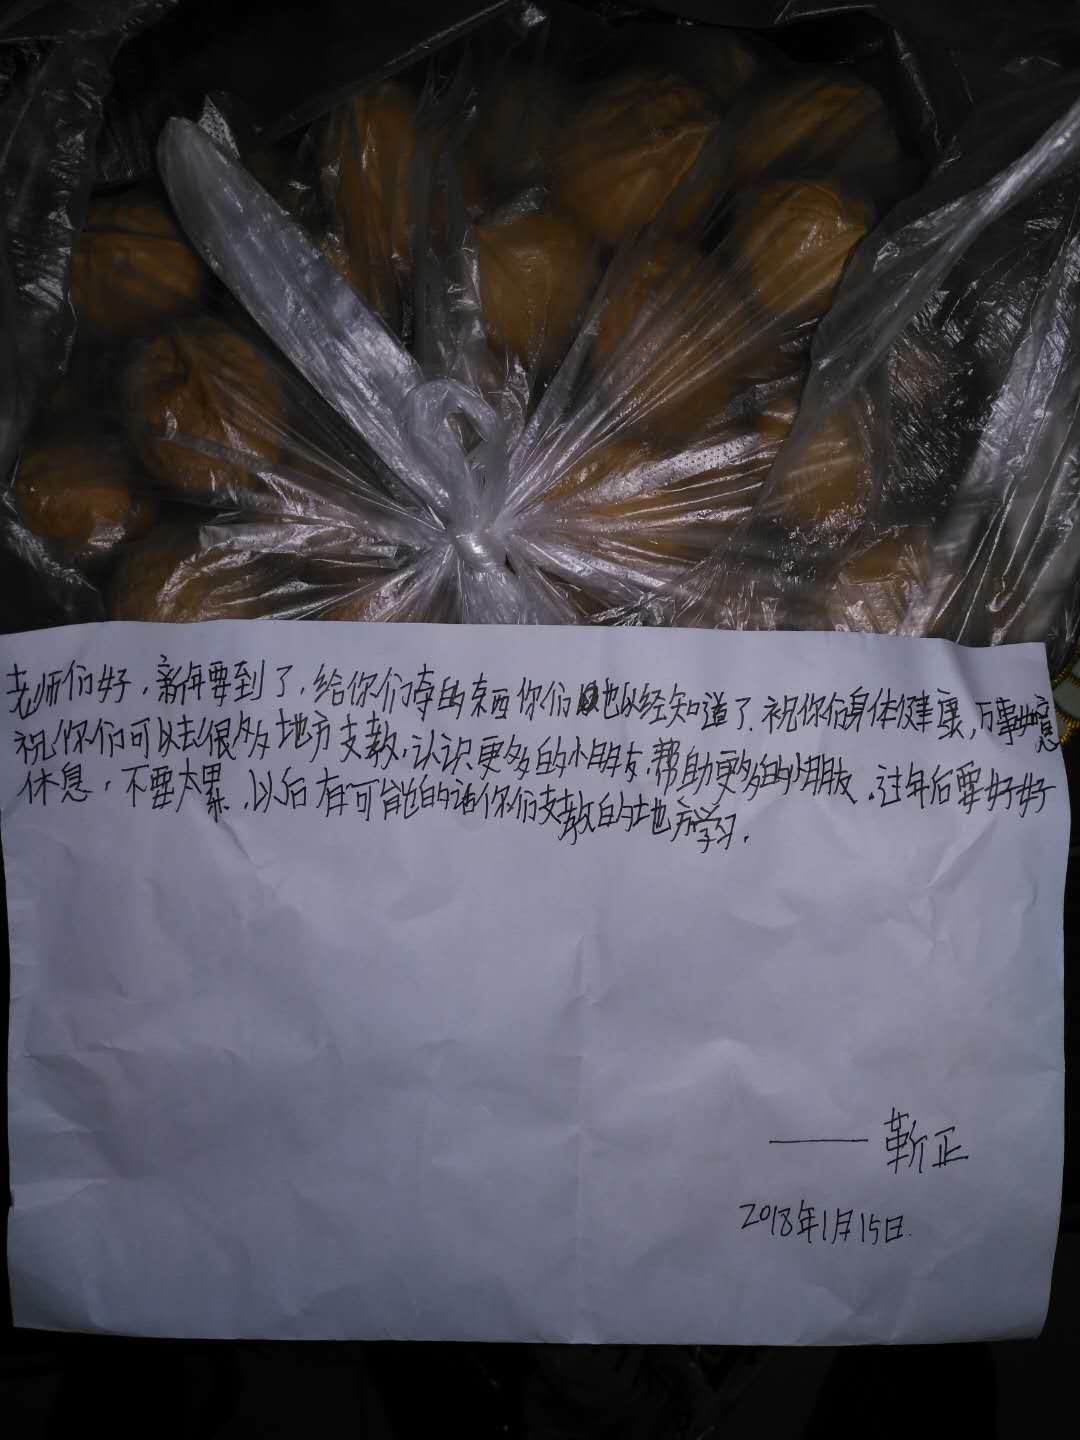 老师们好,新年要到了,给你们寄的东西你们也以经知道了.祝你们身体健康,万事如意
祝你们可以去很多地方支教,认识更多的小朋友,帮助更多的小朋友.过年后要好好
休息,不要太累,以后有可能的话你们支教的地方学习.
——靳正
2018年1月15日.